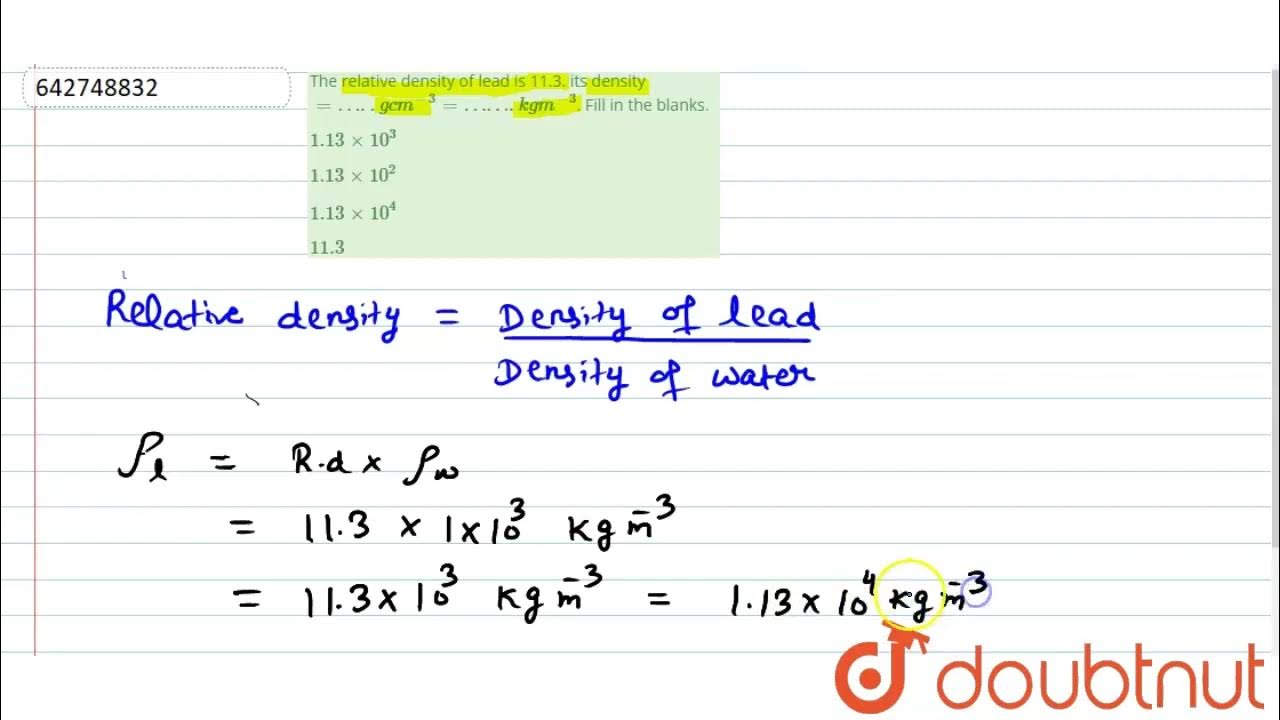 642748832
The relative density of lead is 11.3. its density
= ..... gcm⁻³ = ....... kgm⁻³. Fill in the blanks.
1.13 × 10³
1.13 × 10²
1.13 × 10⁴
11.3
Relative density = Density of lead
Density of water
ρₗ = R.d × ρw
= 11.3 × 1×10³ kg m⁻³
= 11.3 × 10³ kg m⁻³ = 1.13 × 10⁴ kg m⁻³
doubtnut